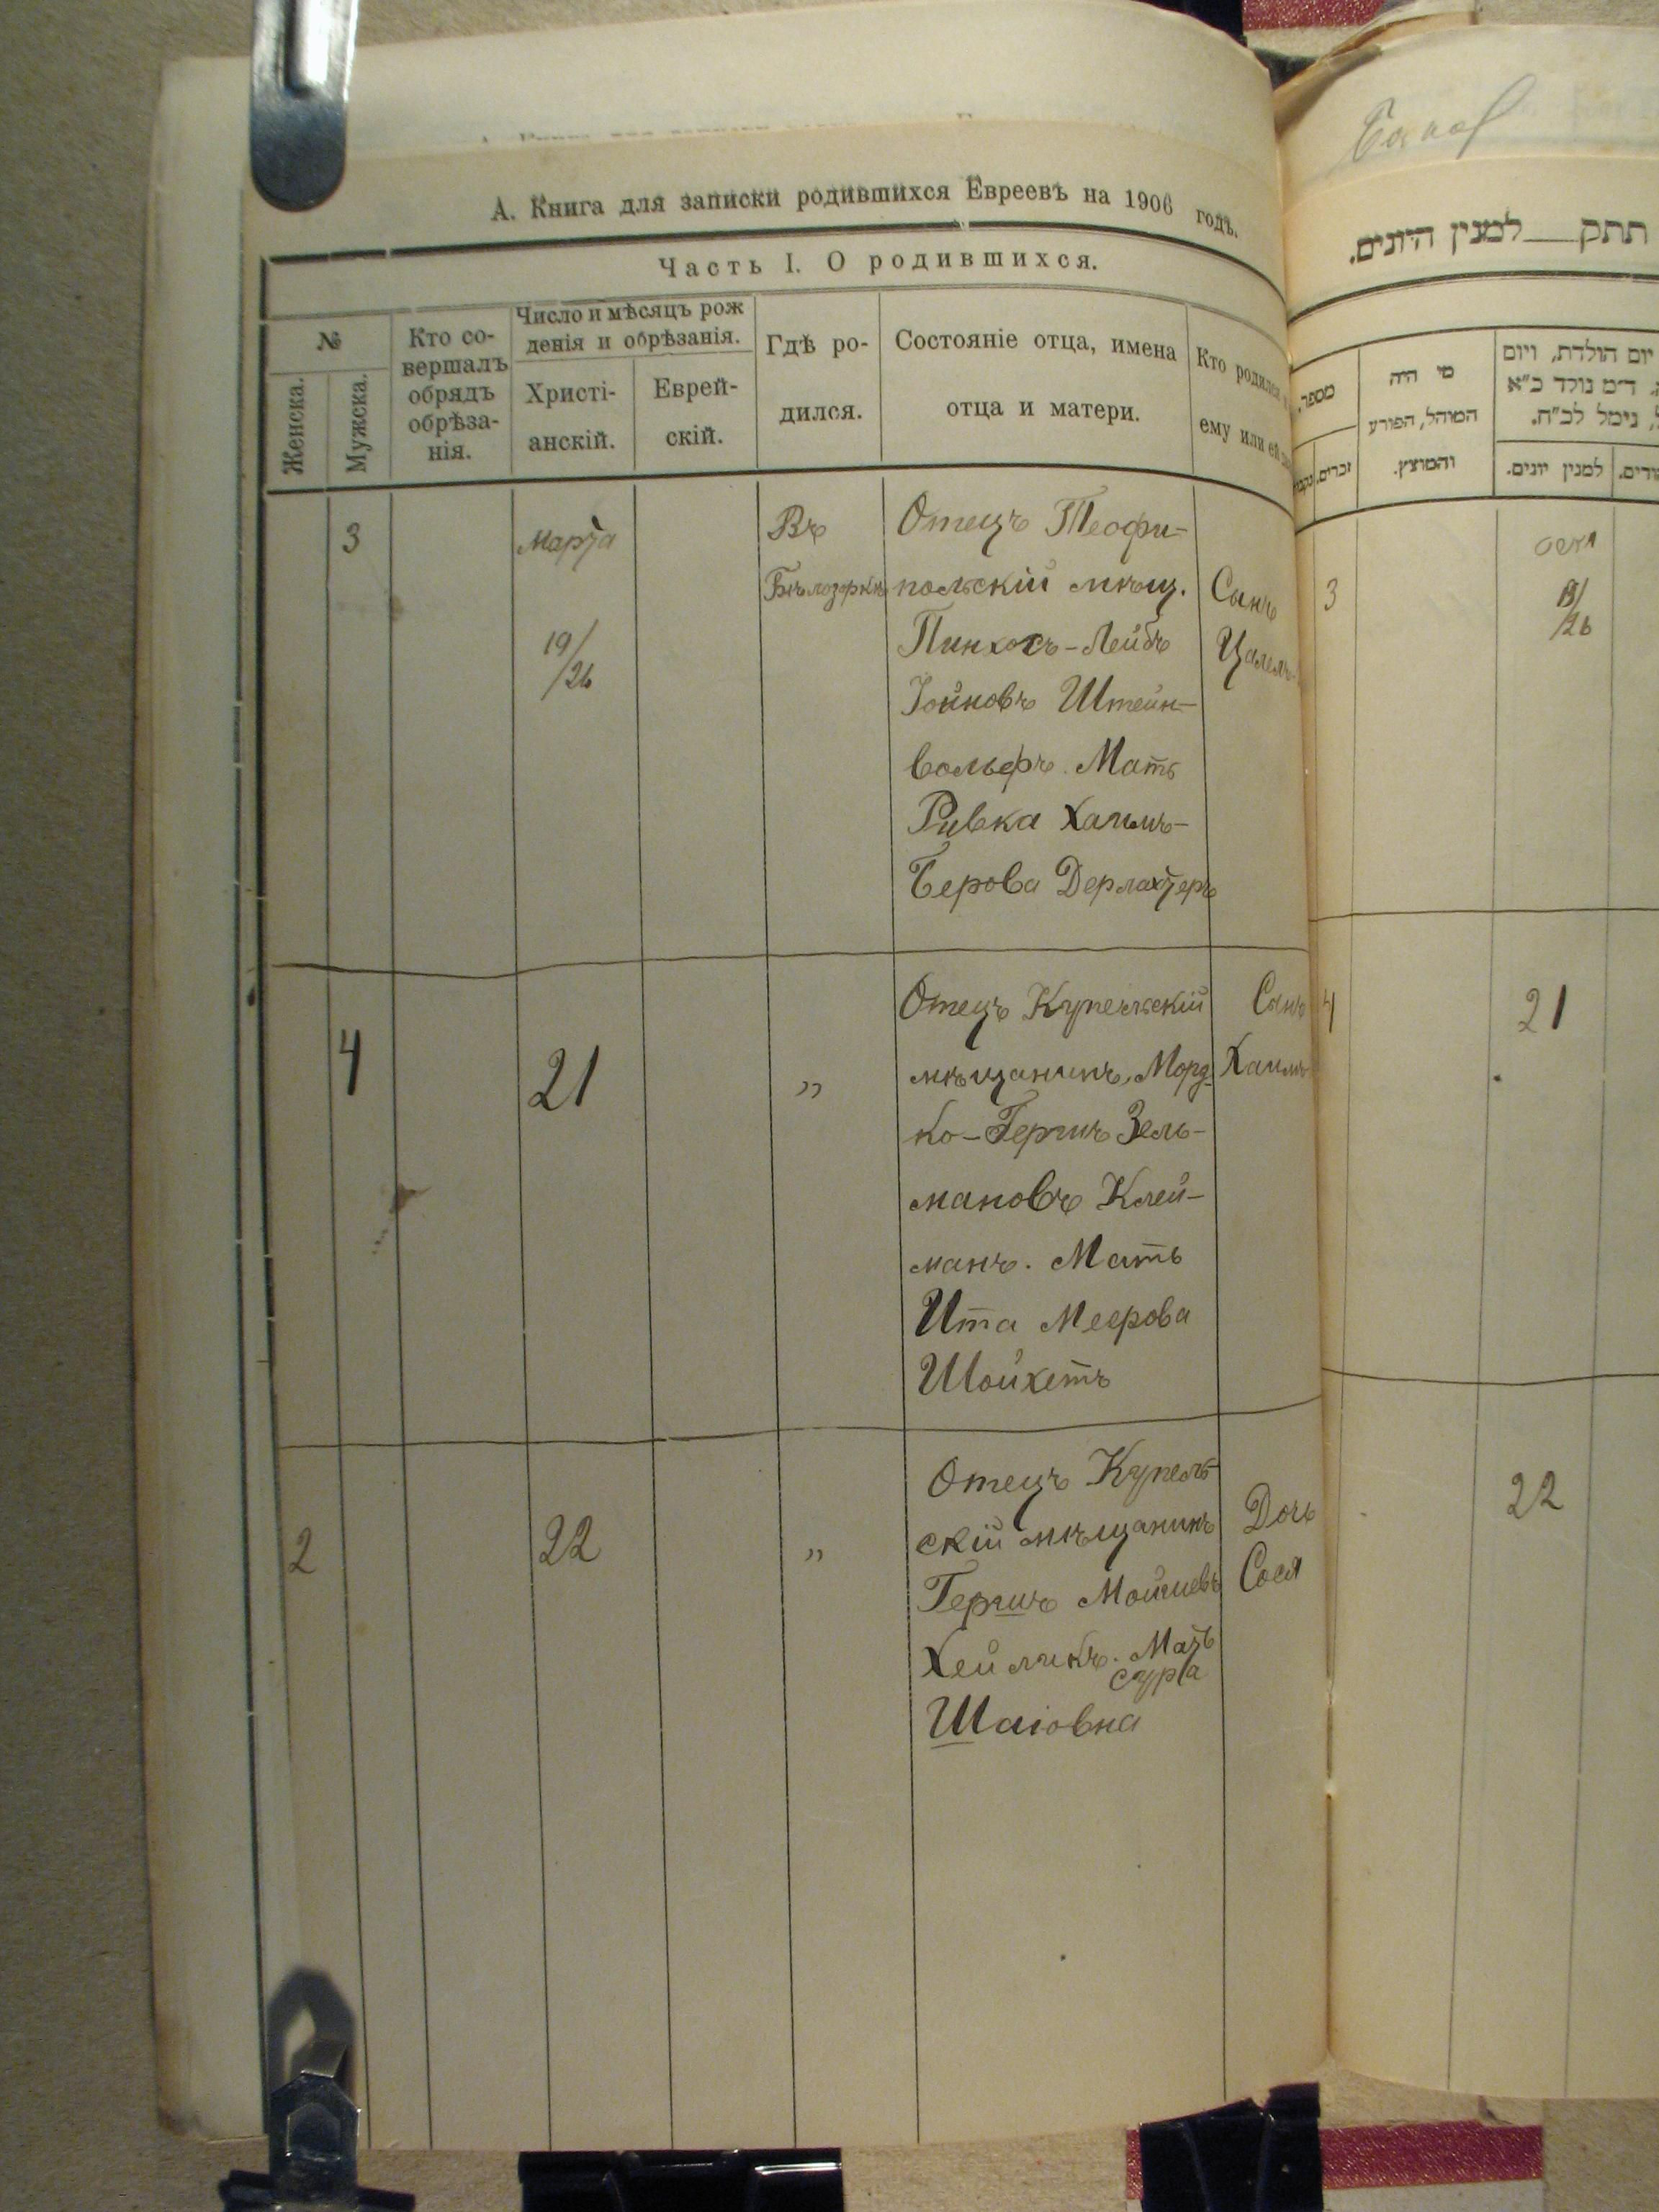 А. Книга для записки родившихся Евреевъ на 1906 годъ.
Часть I. О родившихся.
№
Женска.
Мужска.
Кто со-
вершалъ
обрядъ
обрѣза-
нія.
Число и мѣсяцъ рож
денія и обрѣзанія.
Христі-
анскій.
Еврей-
скій.
Гдѣ ро-
дился.
Состояніе отца, имена
отца и матери.
Кто родился
ему или ей
3
Марта
19/
/26
Въ
Бѣлозоркѣ
Отецъ Теофи-
польскій мѣщ.
Пинхосъ-Лейбъ
Іойновъ Штейн-
вольфъ. Мать
Ривка Хаимъ-
Берова Дерлахтеръ
Сынъ
Цалель-
4
21
"
Отецъ Купельскій
мѣщанинъ, Морд-
ко-Гершъ Зель-
мановъ Клей-
манъ. Мать
Ита Меерова
Шойхетъ
Сынъ
Хаимъ
2
22
"
Отецъ Купель-
скій мѣщанинъ
Гершъ Мойшевъ
Хейликъ. Мать
Сура
Шаіовна
Дочь
Сося
תתק___למנין היונים.
מספר.
זכרים.
מי היה
המוהל, הפורע
והמוצץ.
יום הולדת, ויום
ד״מ נולד כ״א
נימל לכ״ח.
למנין יונים.
3
/26
4
21
22